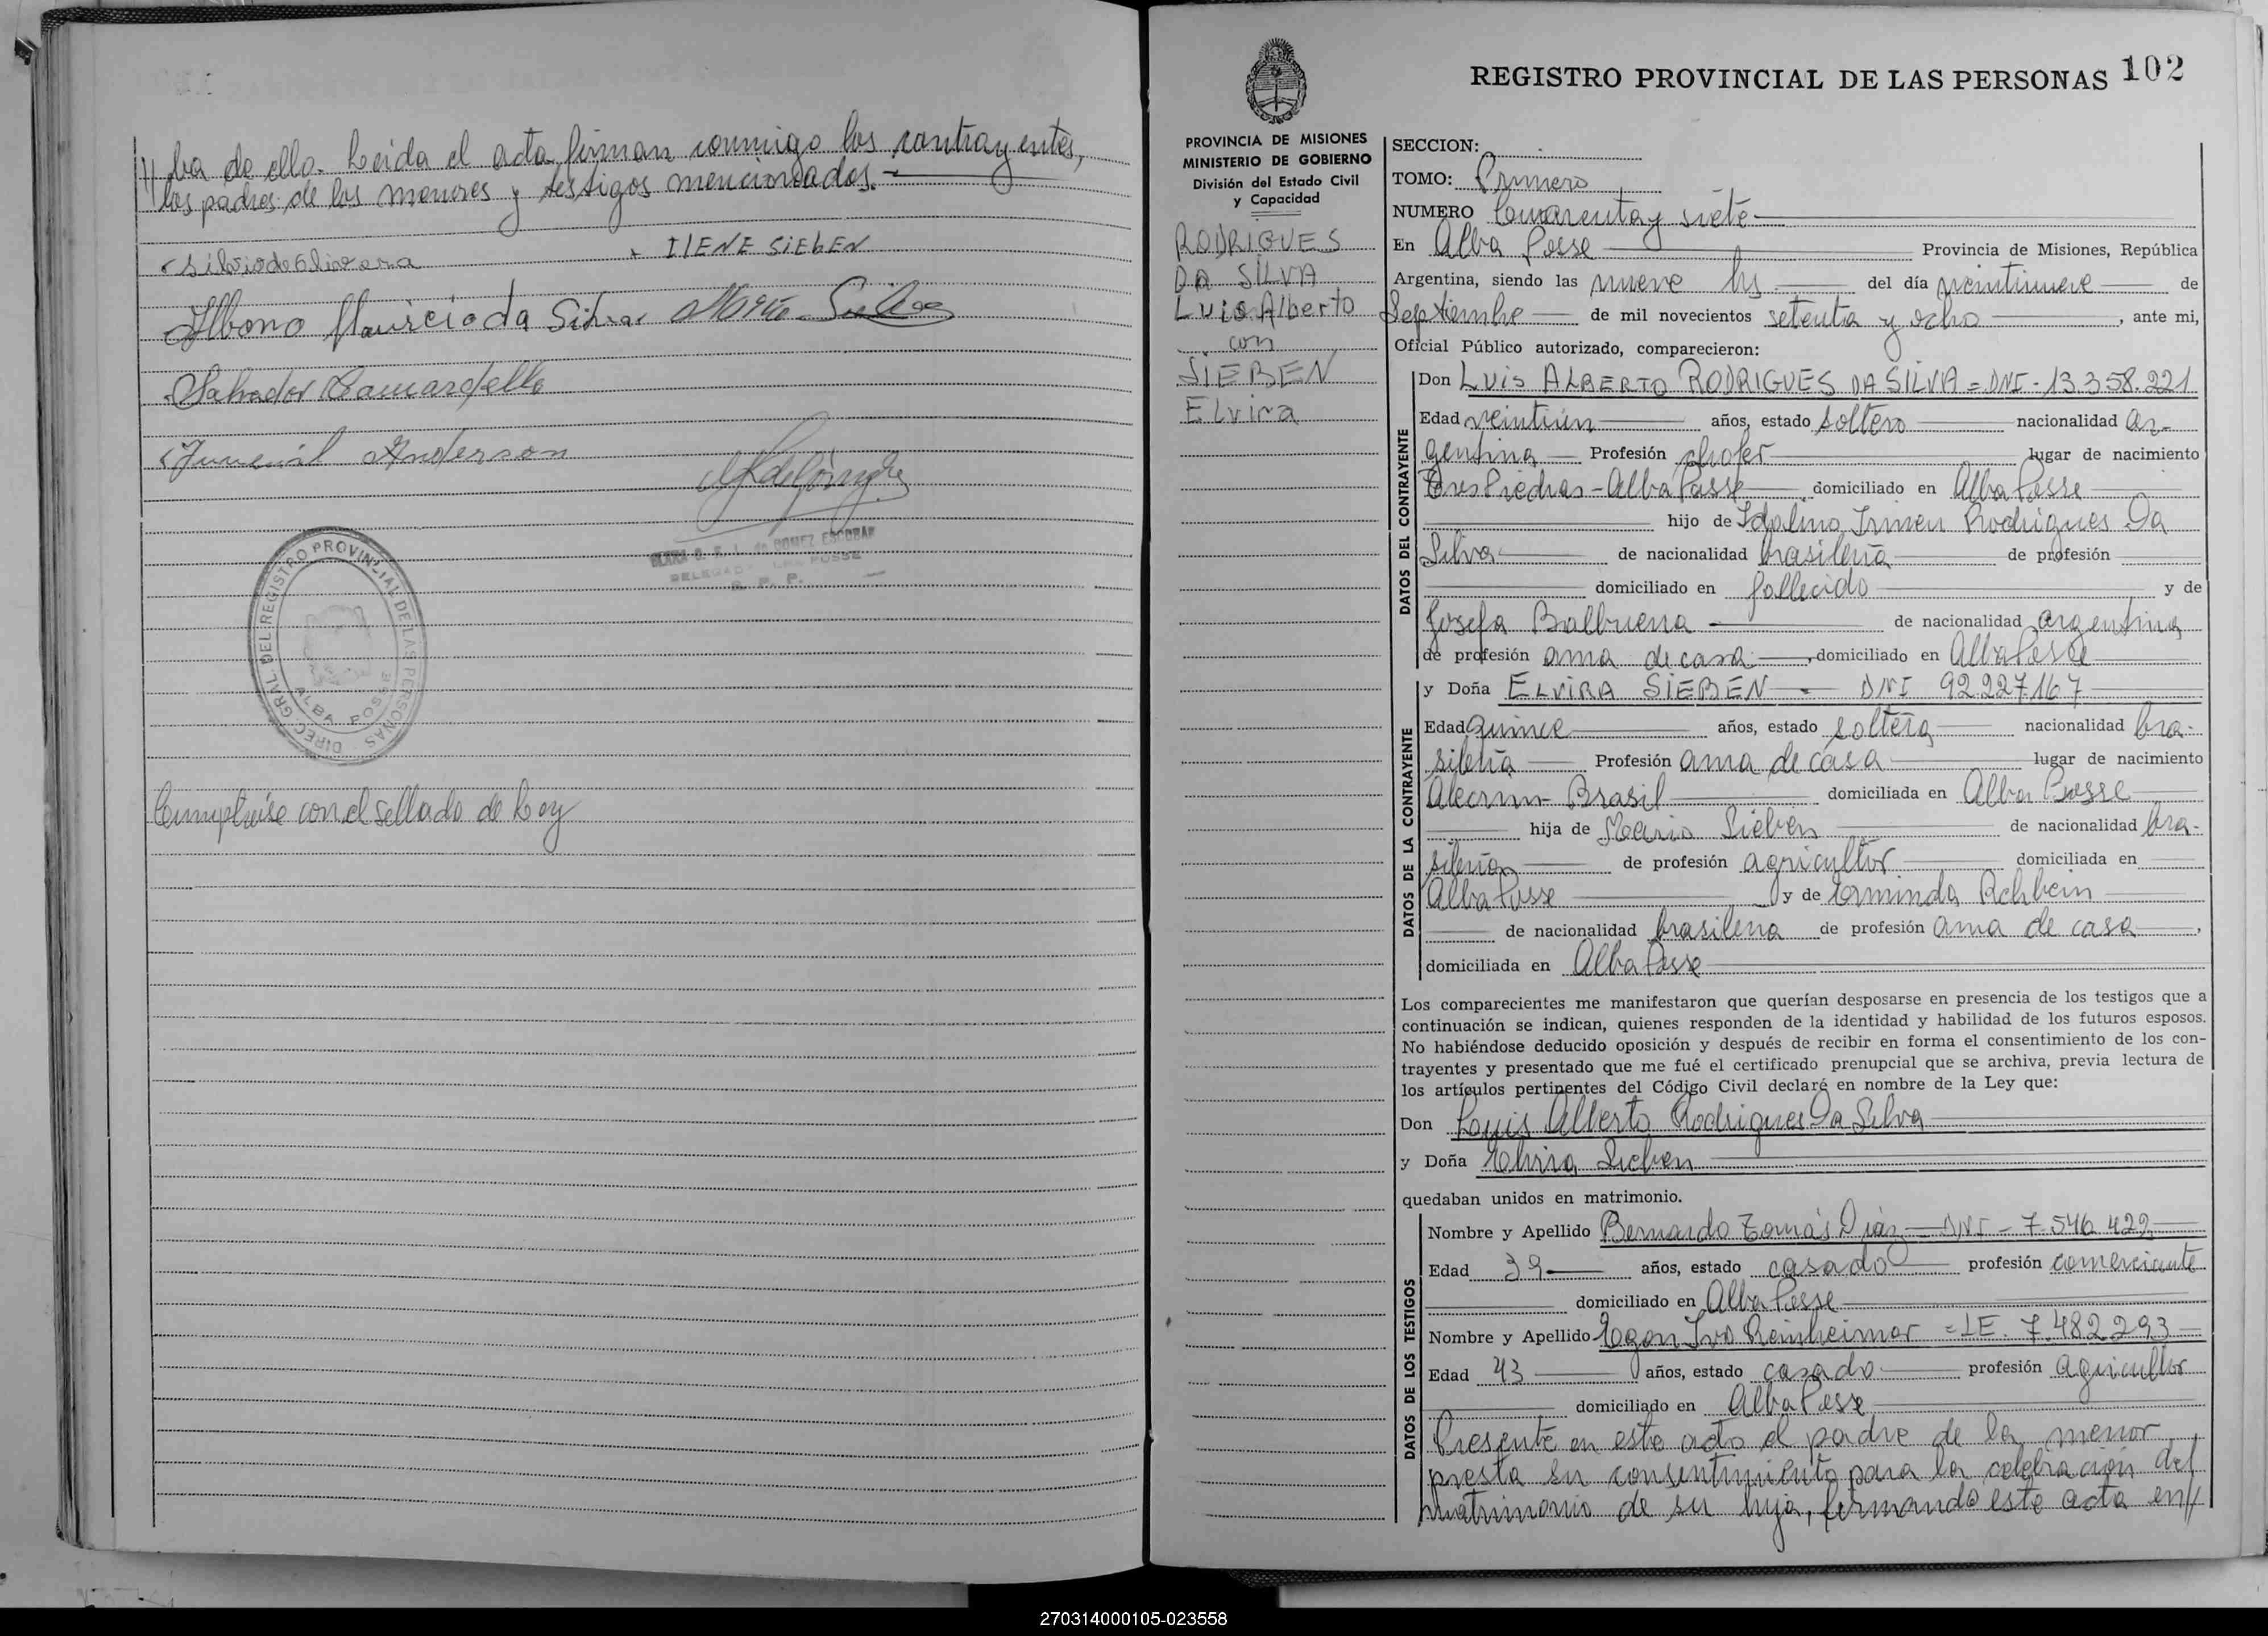 //ba de ello. Leida el acta, firman conmigo los contrayentes,
los padres de los menores y testigos mencionados.
Silvio de Olivera
ILENE SiEbEN
Albano Mauricio da Silva
Mario Sieben
Salvador Camardelli
Juvenil Anderson
DELEGADA ALBA POSSE
R. P. P.
DIREC. GRAL. DEL REGISTRO PROVINCIAL DE LAS PERSONAS
ALBA POSSE
Cumpliose con el sellado de Ley
REGISTRO PROVINCIAL DE LAS PERSONAS 102
PROVINCIA DE MISIONES
MINISTERIO DE GOBIERNO
División del Estado Civil
y Capacidad
RODRIGUES
DA SILVA
Luis Alberto
con
SIEBEN
Elvira
SECCION:
TOMO: Primero
NUMERO Cuarenta y siete
En Alba Posse Provincia de Misiones, República
Argentina, siendo las nueve hs del día veintinueve de
Septiembre de mil novecientos setenta y ocho, ante mi,
Oficial Público autorizado, comparecieron:
DATOS DEL CONTRAYENTE
Don LUIS ALBERTO RODRIGUES DA SILVA = DNI - 13.358.221
Edad veintiún años, estado soltero nacionalidad ar-
gentina Profesión chofer lugar de nacimiento
Tres Piedras - Alba Posse domiciliado en Alba Posse
hijo de Idalino Irineu Rodrigues Da
Silva de nacionalidad brasileña de profesión
domiciliado en fallecido y de
Josefa Balbuena de nacionalidad argentina
de profesión ama de casa, domiciliado en Alba Posse
DATOS DE LA CONTRAYENTE
y Doña ELVIRA SIEBEN - DNI 92.227.167
Edad quince años, estado soltera nacionalidad bra-
sileña Profesión ama de casa lugar de nacimiento
Alecrim - Brasil domiciliada en Alba Posse
hija de Mario Sieben de nacionalidad bra-
sileña de profesión agricultor domiciliada en
Alba Posse y de Erminda Rehbein
de nacionalidad brasilena de profesión ama de casa,
domiciliada en Alba Posse
Los comparecientes me manifestaron que querían desposarse en presencia de los testigos que a
continuación se indican, quienes responden de la identidad y habilidad de los futuros esposos.
No habiéndose deducido oposición y después de recibir en forma el consentimiento de los con-
trayentes y presentado que me fué el certificado prenupcial que se archiva, previa lectura de
los artículos pertinentes del Código Civil declaré en nombre de la Ley que:
Don Luis Alberto Rodrigues Da Silva
y Doña Elvira Sieben
quedaban unidos en matrimonio.
DATOS DE LOS TESTIGOS
Nombre y Apellido Bernardo Tomás Díaz - DNI - 7.546.429
Edad 39 años, estado casado profesión comerciante
domiciliado en Alba Posse
Nombre y Apellido Egon Ivo Reinheimer = LE. 7.482.293
Edad 43 años, estado casado profesión agricultor
domiciliado en Alba Posse
Presente en este acto el padre de la menor
presta su consentimiento para la celebración del
matrimonio de su hija, firmando este acta en//
270314000105-023558